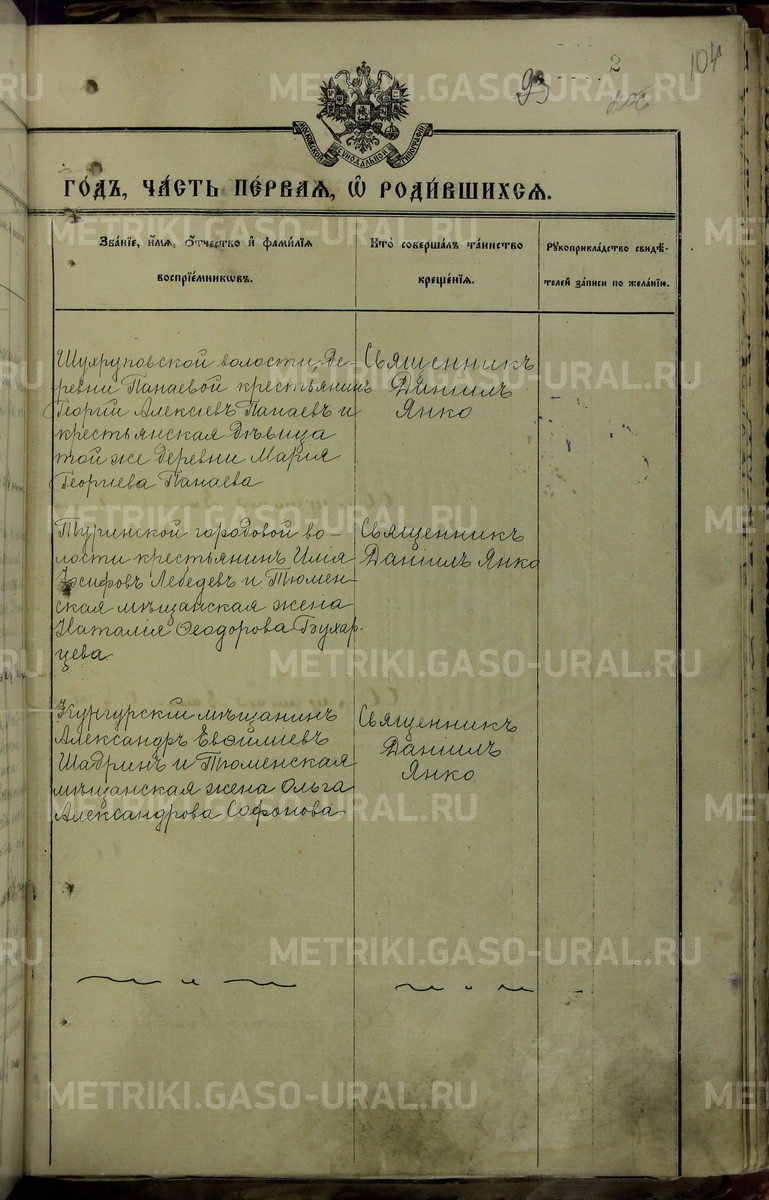 93
2
104
МОСКОВСКОЙ СѴНОДАЛЬНОЙ ТИПОГРАФІИ
ГОДЪ, ЧАСТЬ ПЕРВАѦ, Ѡ РОДИВШИХСѦ.
Званіе, имѧ, отчество и фамиліѧ воспріемникѡвъ.
Кто совершалъ таинство крещеніѧ.
Рукоприкладство свидѣтелей записи по желанію.
Шухруповской волости, де-
ревни Панаевой крестьянинъ
Георгій Алексіевъ Панаевъ и
крестьянская дѣвица
той же деревни Марія
Георгиева Панаева
Священникъ
Даніилъ
Янко
Туринской городовой во-
лости крестьянинъ Илія
Іосифовъ Лебедевъ и Тюмен-
ская мѣщанская жена
Наталія Ѳеодорова Бухар-
цева.
Священникъ
Даніилъ Янко
Кунгурскій мѣщанинъ
Александръ Евѳиміевъ
Шадринъ и Тюменская
мѣщанская жена Ольга
Александрова Софонова
Священникъ
Даніилъ
Янко
METRIKI.GASO-URAL.RU